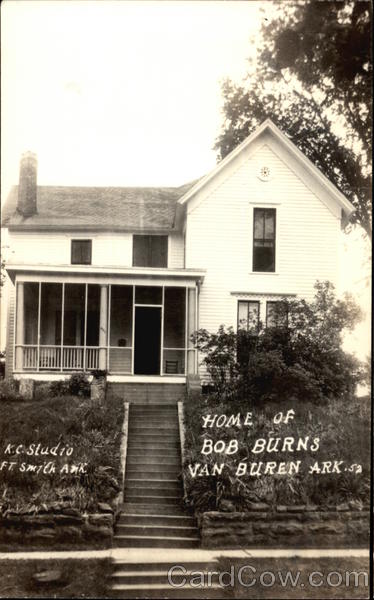 HOME OF
BOB BURNS
VAN BUREN ARK. 52
K.C. Studio
FT. Smith Ark
CardCow.com